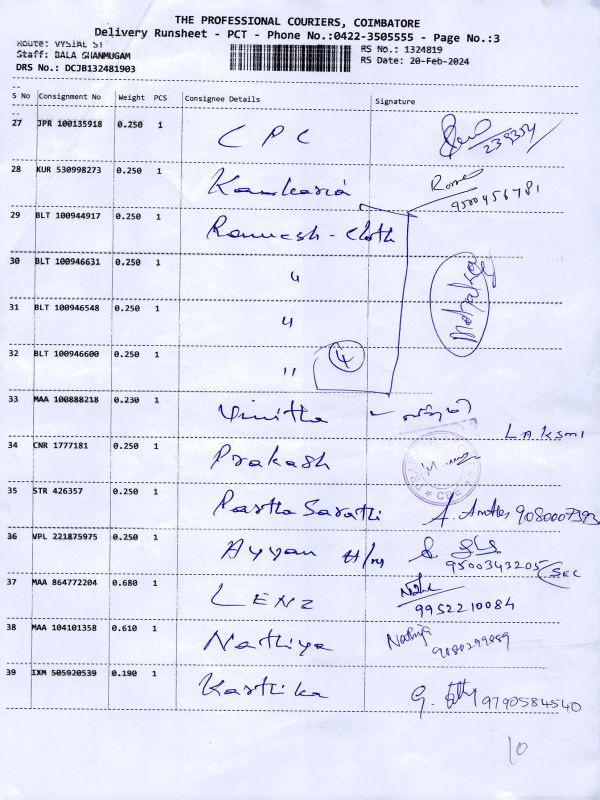 THE PROFESSIONAL COURIERS, COIMBATORE
Delivery Runsheet - PCT - Phone No.:0422-3505555 - Page No.:3
Route: VYSIAL ST
RS No.: 1324819
Staff: BALA SHANMUGAM
RS Date: 20-Feb-2024
DRS No.: DCJB132481903
S No Consignment No Weight PCS Consignee Details Signature
27 JPR 100135918 0.250 1 CPC 239354
28 KUR 530998273 0.250 1 Kankaria
9500456781
29 BLT 100944917 0.250 1 Ramesh - Cloth
30 BLT 100946631 0.250 1 "
31 BLT 100946548 0.250 1 "
32 BLT 100946600 0.250 1 " 4
33 MAA 100888218 0.230 1 Vinitha
LAKSMI
34 CNR 1777181 0.250 1 Prakash
35 STR 426357 0.250 1 Partha Sarathi
36 VPL 221875975 0.250 1 Ayyan
9500343205 SEC
37 MAA 864772204 0.680 1 LENZ
9952210084
38 MAA 104101358 0.610 1 Nathiya Nathiya
39 IXM 505920539 0.190 1 Karthika 9790584540
10